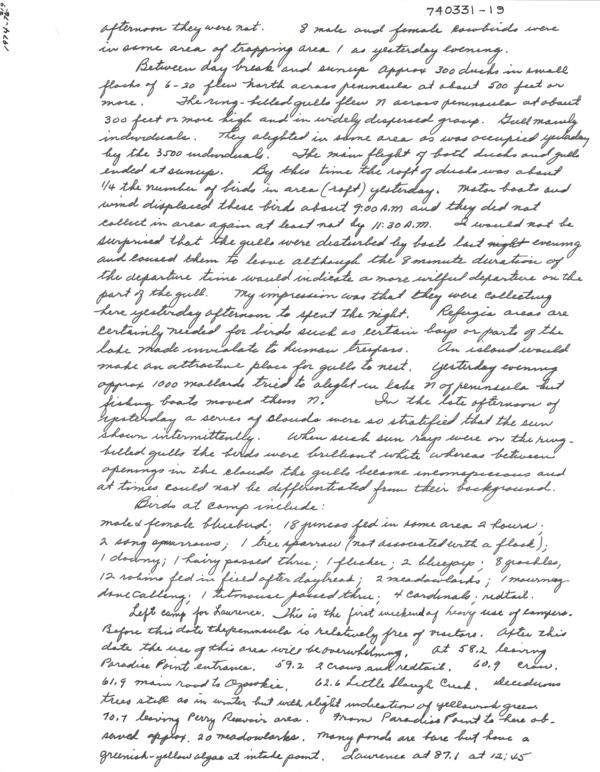 740331-19
afternoon they were not. 8 male and female cowbirds were
in same area of trapping area 1 as yesterday evening.
Between day break and sunup approx 300 ducks in small
flocks of 6-20 flew north across peninsula at about 500 feet or
more. The ring-billed gulls flew N across peninsula at about
300 feet or more high and in widely dispersed group. Gull mainly
individuals. They alighted in same area as was occupied yesterday
by the 3500 individuals. The main flight of both ducks and gulls
ended at sunup. By this time the raft of ducks was about
1/4 the number of birds in area (raft) yesterday. Motor boats and
wind displaced these birds about 9:00 A.M and they did not
collect in area again at least not by 11:30 A.M. I would not be
surprised that the gulls were disturbed by boats last night evening
and caused them to leave although the 8 minute duration of
the departure time would indicate a more wilful departure on the
part of the gull. My impression was that they were collecting
here yesterday afternoon to spent the night. Refugia areas are
certainly needed for birds such as certain bays or parts of the
lake made inviolate to human trespass. An island would
make an attractive place for gulls to nest. Yesterday evening
approx 1000 mallards tried to alight in lake N of peninsula but
fishing boats moved them N. In the late afternoon of
yesterday a series of clouds were so stratified that the sun
shown intermittently. When such sun rays were on the ring-
billed gulls the birds were brilliant white whereas between
openings in the clouds the gulls became inconspicuous and
at times could not be differentiated from their background.
Birds at camp include:
male & female bluebird; 18 juncos fed in same area 2 hours;
2 song sparrows; 1 tree sparrow (not associated with a flock);
1 downy; 1 hairy passed thru; 1 flicker; 2 bluejays; 8 grackles,
12 robins fed in field after daybreak; 2 meadowlarks; 1 mourning
dove calling; 1 titmouse passed thru; 4 cardinals. redtail.
Left camp for Lawrence. This is the first weekend of heavy use of campers.
Before this date the peninsula is relatively free of visitors. After this
date the use of this area will be overwhelming. At 58.2 leaving
Paradise Point entrance. 59.2 2 crows and redtail. 60.9 crow.
61.9 main road to Ozawkie. 62.6 Little Slough Creek. Deciduous
trees still as in winter but with slight indication of yellowish green
70.7 leaving Perry Resevoir area. From Paradise Point to here ob-
served approx. 20 meadowlarks. Many ponds are bare but have a
greenish-yellow algae at intake point. Lawrence at 87.1 at 12:45